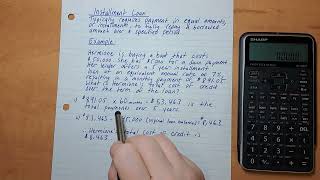 Installment Loan
Typically requires payment in equal amounts,
or installments, to fully repay a borrowed
amount over a specified period.
Example
Hermione is buying a boat that costs
$50,000. She has $5,000 for a down payment.
Her lender offers a 5 year installment
loan at an equivalent annual rate of 7%,
resulting in a monthly payment of $891.05.
What is Hermione's total cost of credit
over the term of the loan?
1) $891.05 x 60 months = $53,463 is the
total payments over 5 years.
2) $53,463 - $45,000 (original loan balance) = $8,463
∴ Hermione's total cost of credit is
$8,463
SHARP